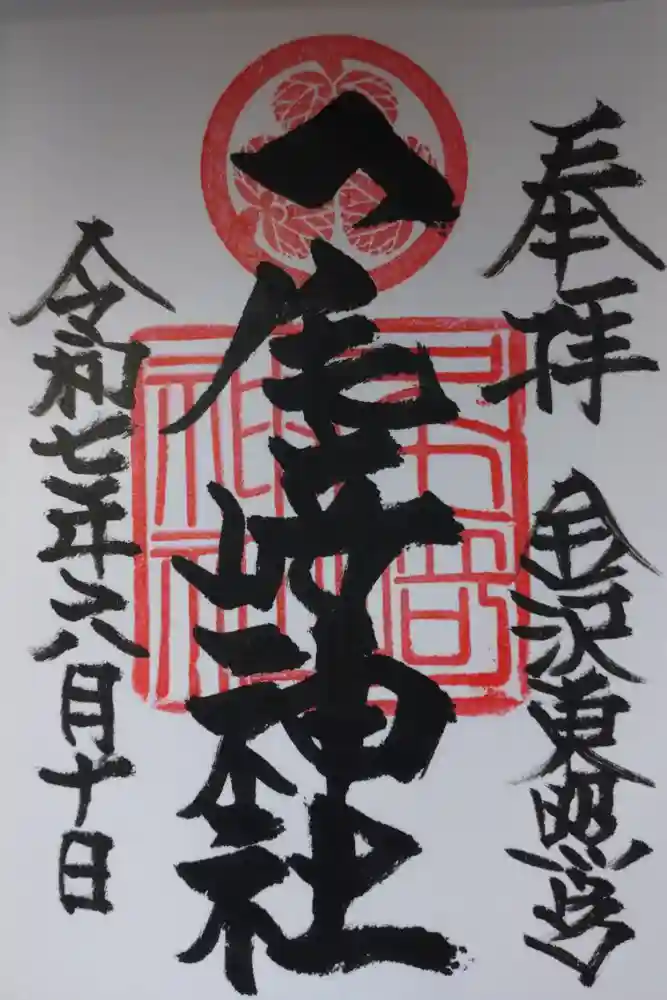 奉拝 金沢東照宮
尾崎神社
令和七年六月十日
尾崎
神社